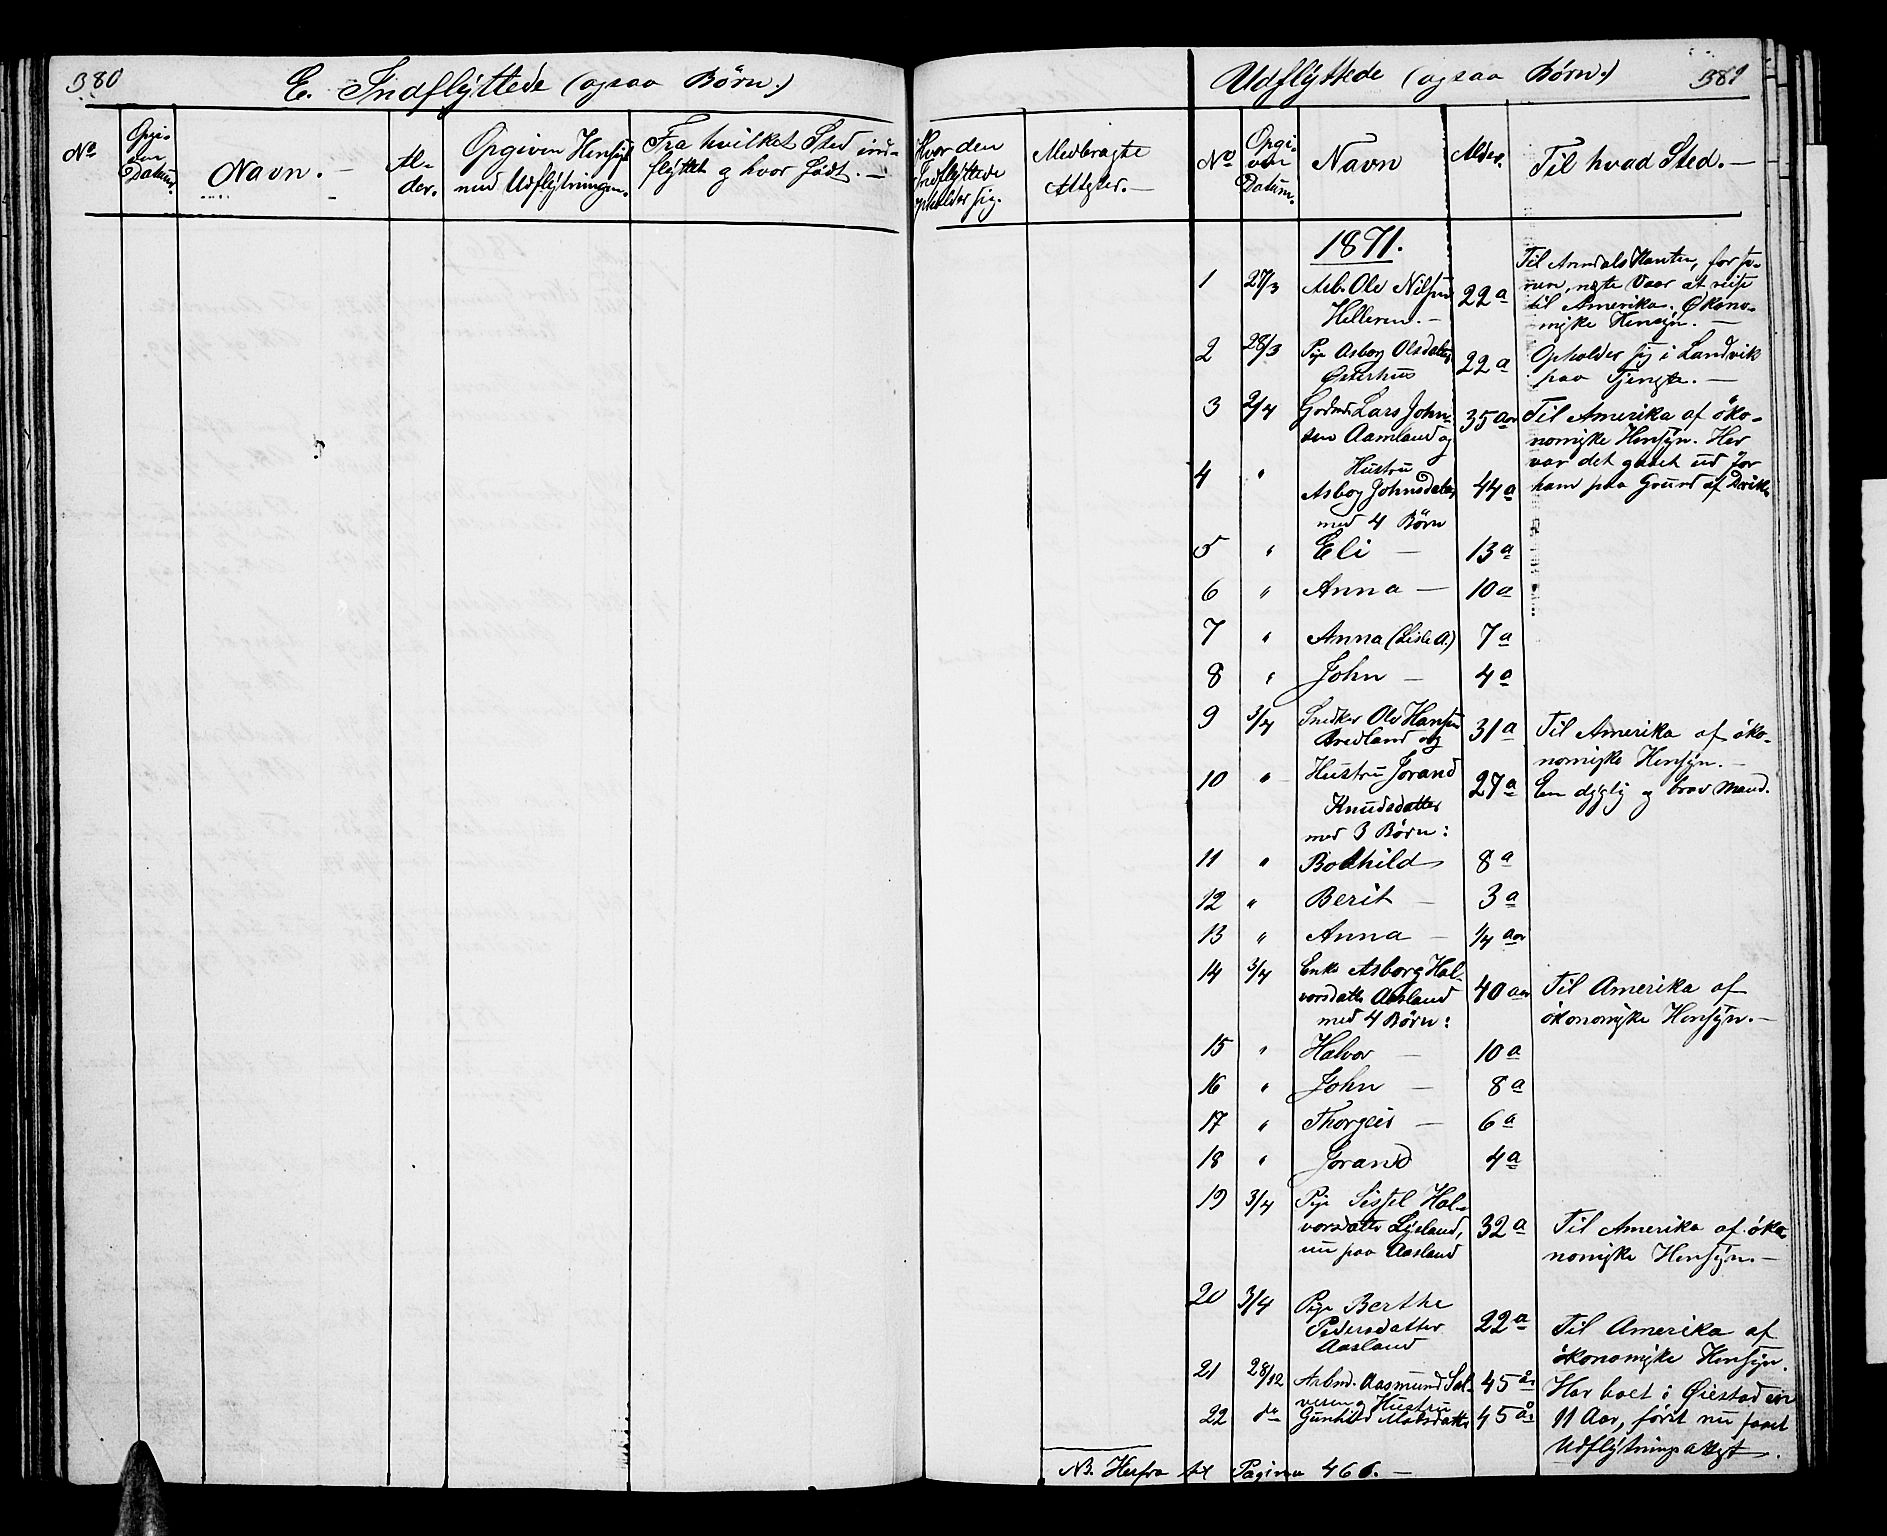 380
E. Indflyttede (ogsaa Börn.)
No
Opgi-
ven
Datum.
Navn. —
Al-
der.
Opgiven Hensigt
med Udflytningen.
Fra hvilket Sted ind-
flyttet og hvor født. —
Hvor den
Indflyttede
opholder sig.
Medbragte
Attester. —
Udflyttede (ogsaa Børn.)
381
No
Opgi-
ven
Datum.
Navn
Alder.
Til hvad Sted. —
1871.
1 27/3 Arb. Ole Nilsen
Helleren. —
22 a
Til Arendals Kanten, for se-
nere, næste Vaar at reise
til Amerika. Økono-
miske Hensyn. —
2 28/3 Pige Asborg Olsdatter
Østerhus
22 a
Opholder sig i Landvik
paa Tjeneste. —
3 2/4 Gadmd. Lars John-
sen Aamland og
35 aar
Til Amerika af öko-
nomiske Hensyn. Her
var det gaaet ud for
ham paa Grund af Drik.
4 " Hustru
Asborg Johnsdatter
med 4 Börn
44 a
5 " Eli — 13 a
6 " Anna — 10 a
7 " Anna (Lisle A.) 7 a
8 " John — 4 a
9 3/4 Snedker Ole Hansen
Aredland og
31 a
Til Amerika af öko-
nomiske Hensyn. —
En dygtig og brav Mand.
10 " Hustru Jorand
Knudsdatter
med 3 Börn:
27 a
11 " Bodhild 8 a
12 " Berit — 3 a
13 " Anna — 1/4 aar
14 3/4 Enke Asborg Hal-
vorsdatter Aasland
med 4 Börn:
40 aar
Til Amerika af
ökonomiske Hensyn. —
15 " Halvor — 10 a
16 " John — 8 a
17 " Thorgeir — 6 a
18 " Jorand 4 a
19 3/4 Pige Sissel Hal-
vorsdatter Lÿsland,
nu paa Aasland
32 a
Til Amerika af öko-
nomiske Hensyn. —
20 3/4 Pige Berthe
Pedersdatter
Aasland
22 a
Til Amerika af
økonomiske Hensyn.
21 28/12 Arbmd. Aasmund Sal-
vesen og Hustru
45 år
Har boet i Øiestad i
11 Aar, først nu faaet
Udflytningsattest.
22 do Gunhild Madsdatter 45 år
NB. Herfra til Pagina 466. —